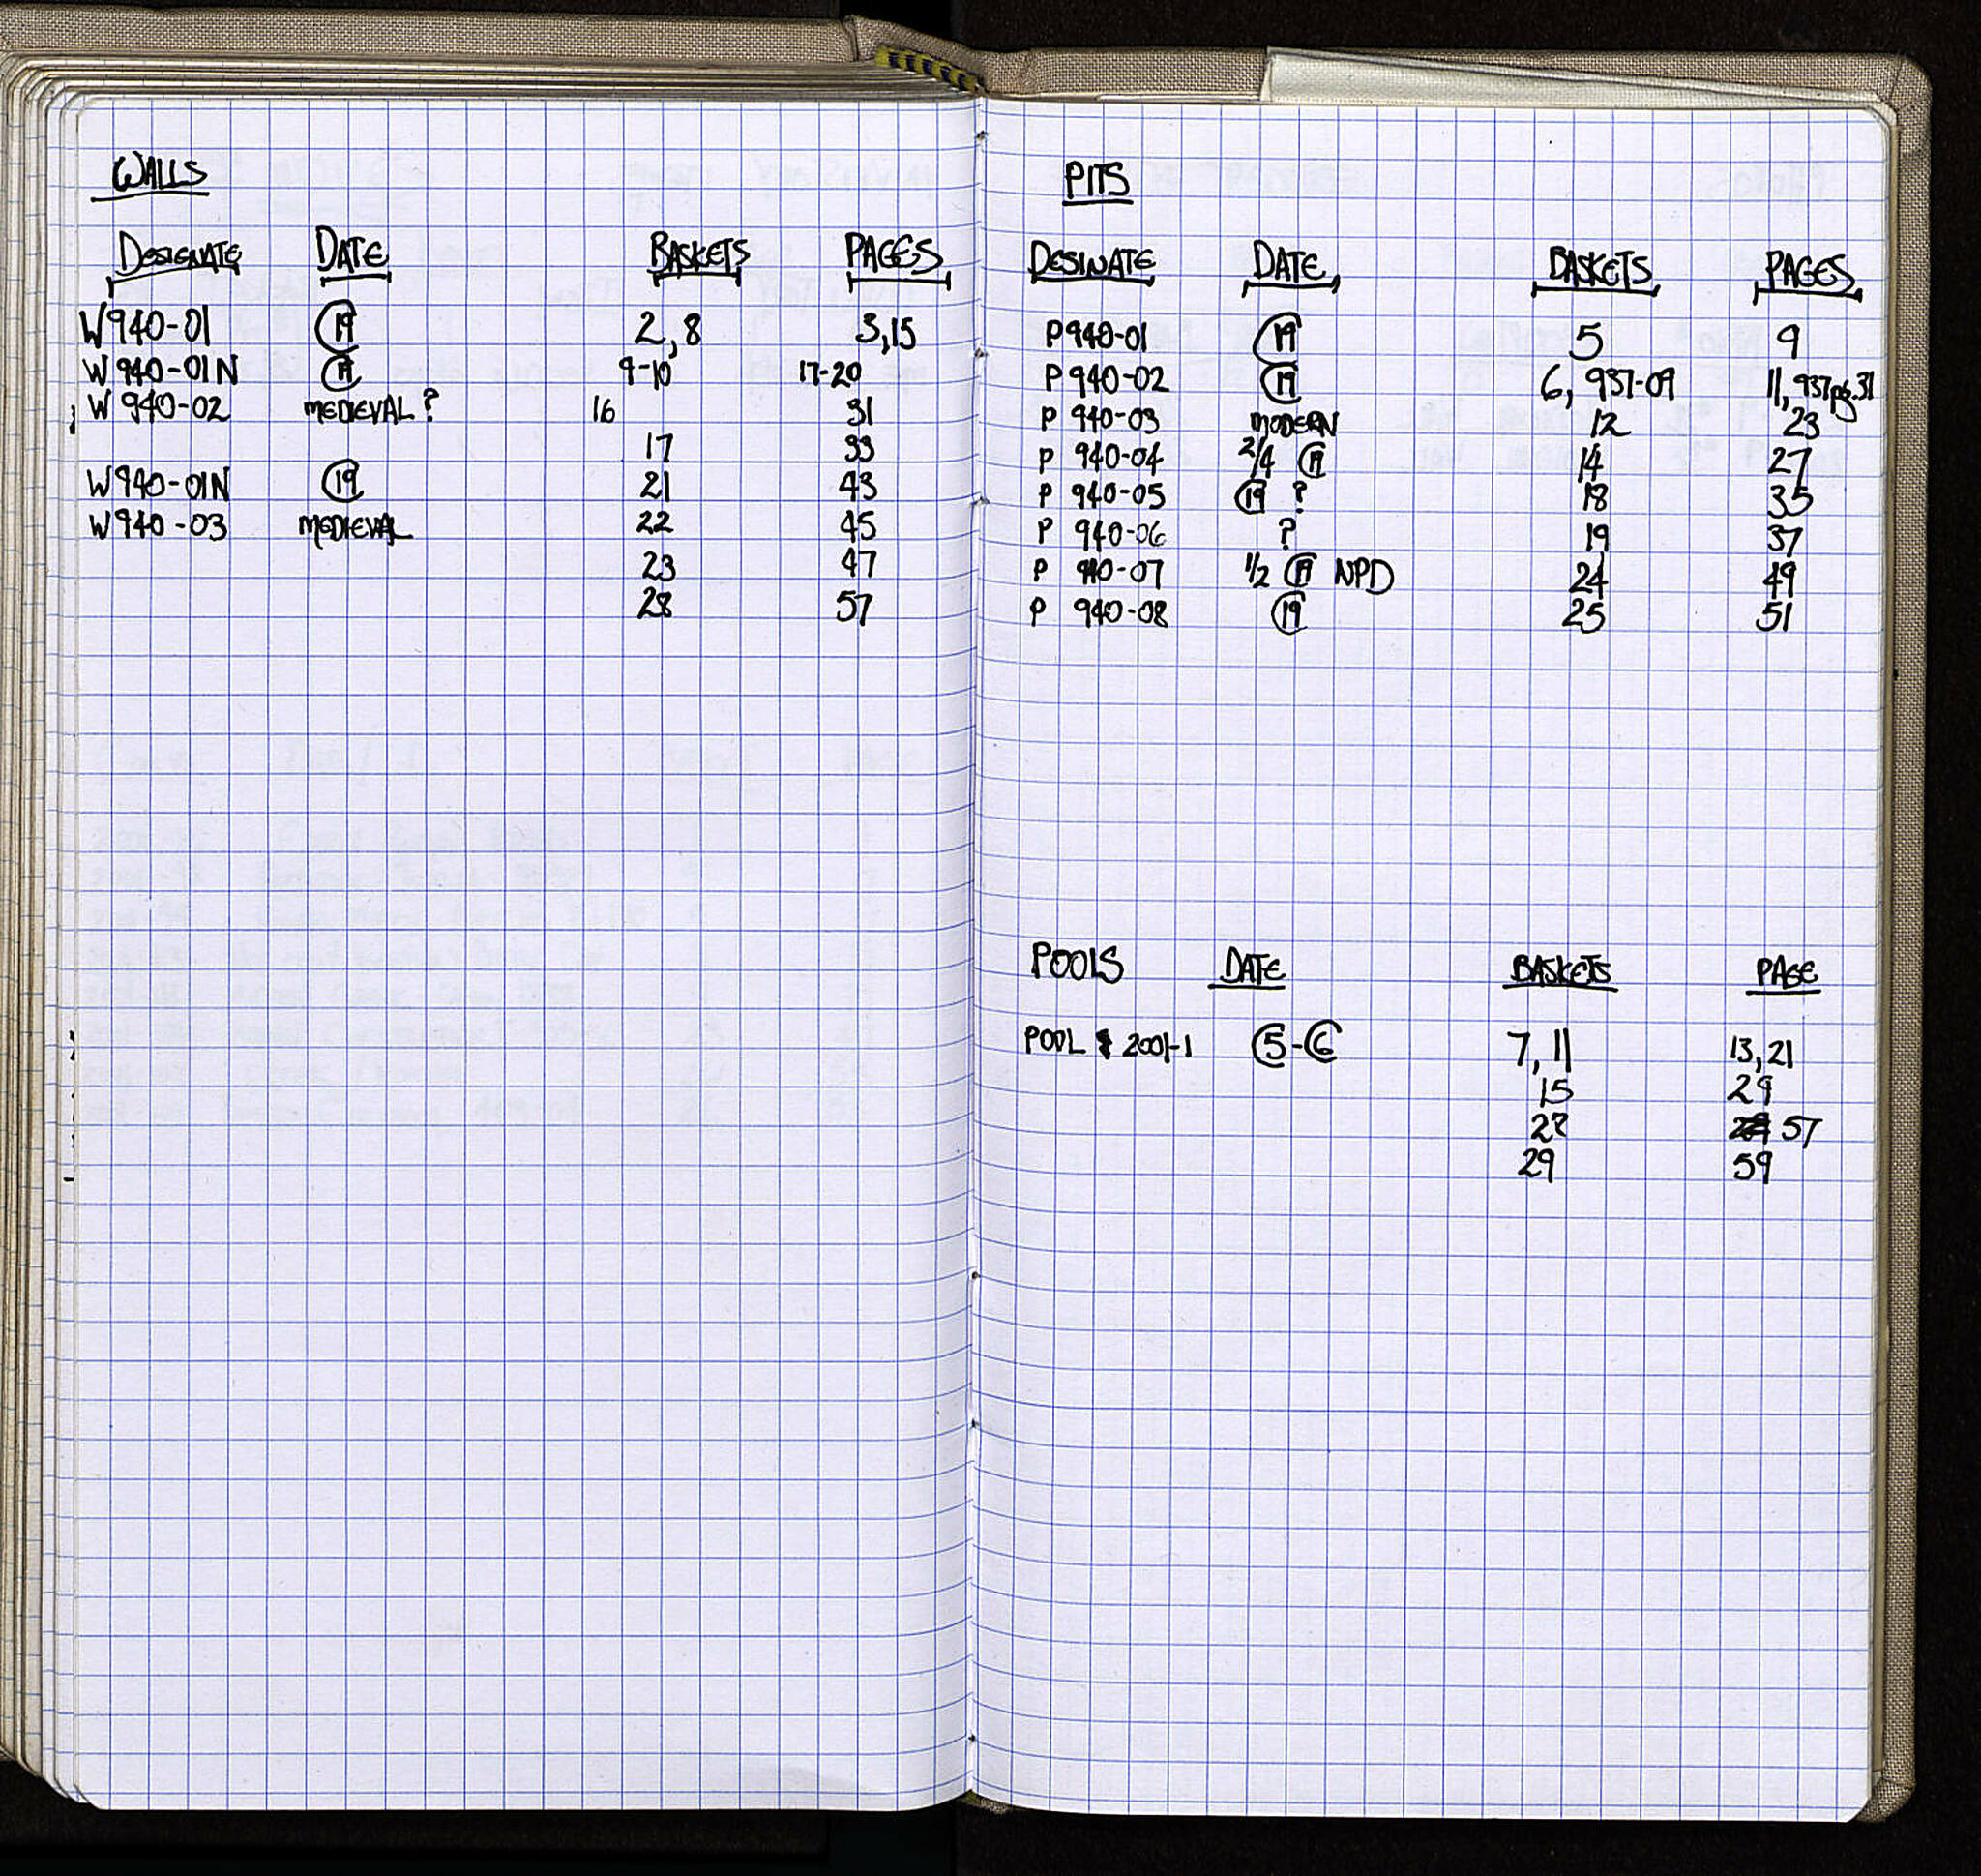 WALLS
DESIGNATE DATE BASKETS PAGES
W940-01 19 2, 8 3,15
W940-01N 19 9-10 17-20
W940-02 MEDIEVAL? 16 31
17 33
W940-01N 19 21 43
W940-03 MEDIEVAL 22 45
23 47
28 57
PITS
DESINATE DATE BASKETS PAGES
P940-01 19 5 9
P940-02 19 6, 937-09 11, 937pg.31
P 940-03 MODERN 12 23
P 940-04 2/4 19 14 27
P 940-05 19 ? 18 35
P 940-06 ? 19 37
P 940-07 1/2 19 NPD 24 49
P 940-08 19 25 51
POOLS DATE BASKETS PAGE
POOL 2001-1 5-6 7, 11 13, 21
15 29
28 57
29 59